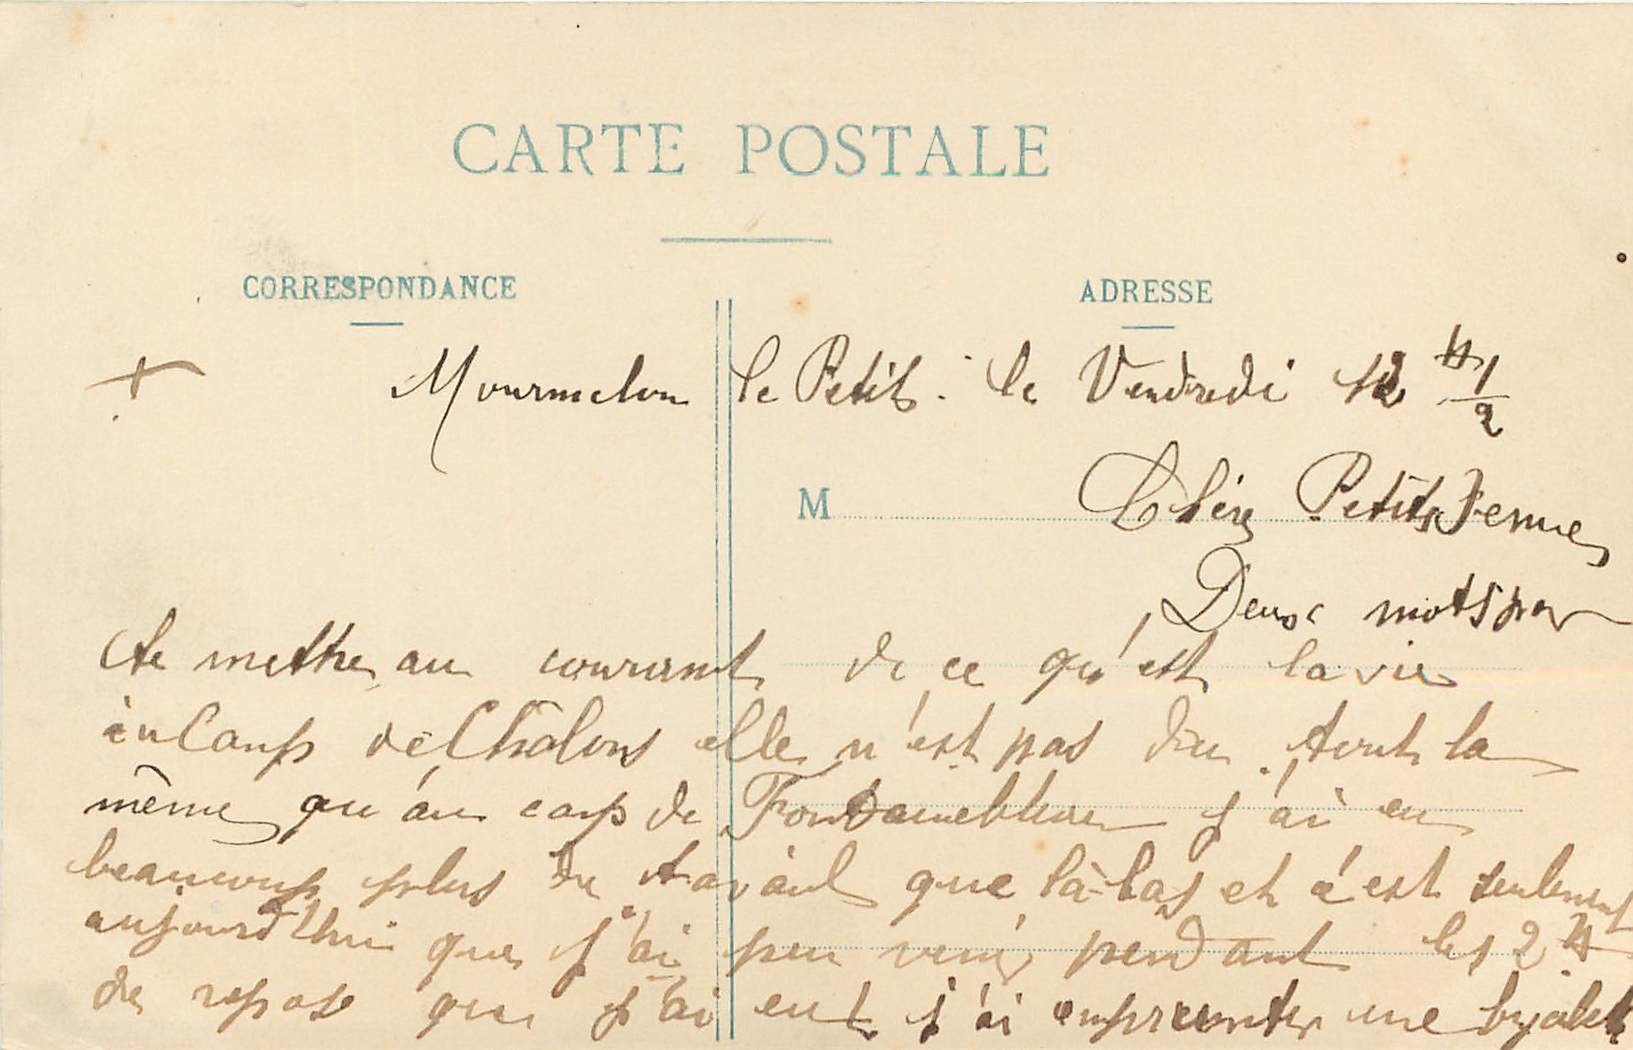 CARTE POSTALE
CORRESPONDANCE
ADRESSE
Mourmelon le Petit. le Vendredi 12 H 1/2
M
Chère Petite Femme
Deux mots pour
te mettre au courant de ce qu'est la vie
au Camp de Châlons elle n'est pas du tout la
même qu'au camp de Fontainebleau j'ai eu
beaucoup plus de travail que là-bas et c'est seulement
aujourd'hui que j'ai peu venir pendant les 2 H
de repos que j'ai eut j'ai emprunter une byclette